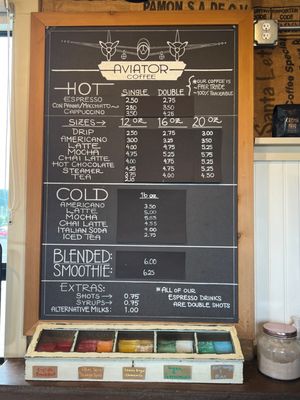 PAMON S.A DE C.V
AVIATOR
COFFEE
HOT
SINGLE DOUBLE
*OUR COFFEE IS
- FAIR TRADE
- 100% TRACEABLE
ESPRESSO 2.50 2.75
CON PANNA/MACCHIATO
CAPPUCCINO 3.50 4.25
SIZES→ 12 OZ 16 OZ 20 OZ
DRIP 2.50 2.75 3.00
AMERICANO 3.00 3.25 3.50
LATTE 4.00 4.75 5.25
MOCHA 4.75 5.25 5.75
CHAI LATTE 4.00 4.75 5.25
HOT CHOCOLATE
STEAMER 4.00 4.50
TEA
COLD
16 OZ
AMERICANO 3.50
LATTE 5.00
MOCHA 5.55
CHAI LATTE
ITALIAN SODA 4.00
ICED TEA 2.75
BLENDED: 6.00
SMOOTHIE: 6.25
EXTRAS:
SHOTS→ 0.75
SYRUPS→ 0.75
ALTERNATIVE MILKS: 1.00
*ALL OF OUR
ESPRESSO DRINKS
ARE DOUBLE SHOTS